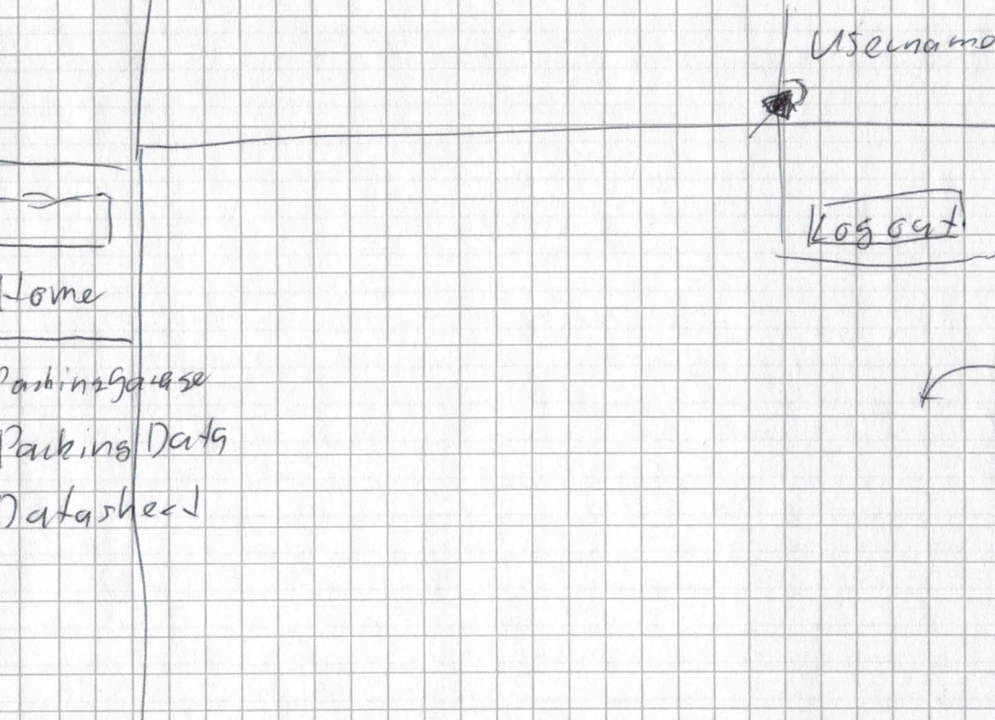 Username
Log out
Home
Parking Garage
Parking Data
Datasheet